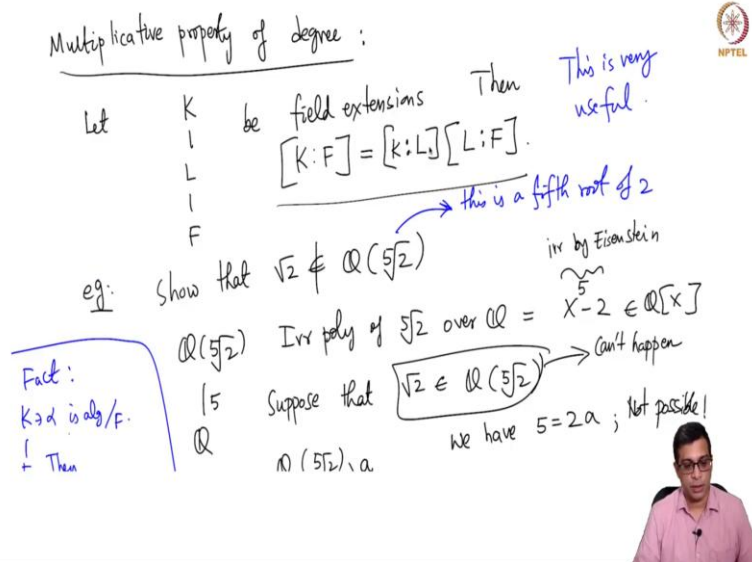 NPTEL
Multiplicative property of degree :
Let K | L | F be field extensions Then
[K:F] = [K:L][L:F].
This is very useful.
this is a fifth root of 2
eg: Show that √2 ∉ ℚ(5√2)
irr by Eisenstein
ℚ(5√2) Irr poly of 5√2 over ℚ = x⁵-2 ∈ ℚ[x]
|5 Suppose that √2 ∈ ℚ(5√2) Can't happen
ℚ
We have 5=2a ; Not possible!
ℚ(5√2) \ a
Fact:
K∋α is alg/F.
| Then